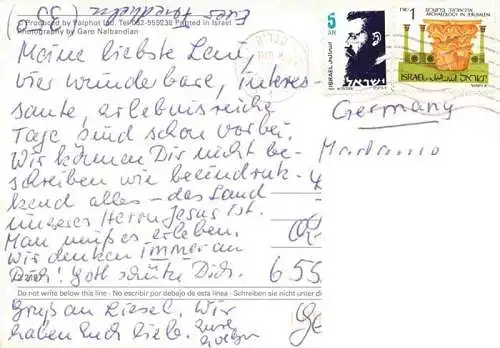 Produced by Palphot Ltd. Tel 052-555238 Printed in Israel
Photography by Garo Nalbandian
Meine liebste Leni,
vier wunderbare, interes-
sante, erlebnisreiche
Tage sind schon vorbei.
Wir können Dir nicht be-
schreiben wie beeindruk-
kend alles – das Land
unseres Herrn Jesus ist.
Man muß es erleben.
Wir denken immer an
Dich! Gott schütze Dich.
Do not write below this line - No escribir por debajo de esta linea - Schreiben sie nicht unter di
Gruß an Liesel. Wir
haben Euch lieb. Eure
5
AN
ISRAEL
ישראל
1
ARCHAEOLOGY IN JERUSALEM
ISRAEL
ישראל
Germany
655